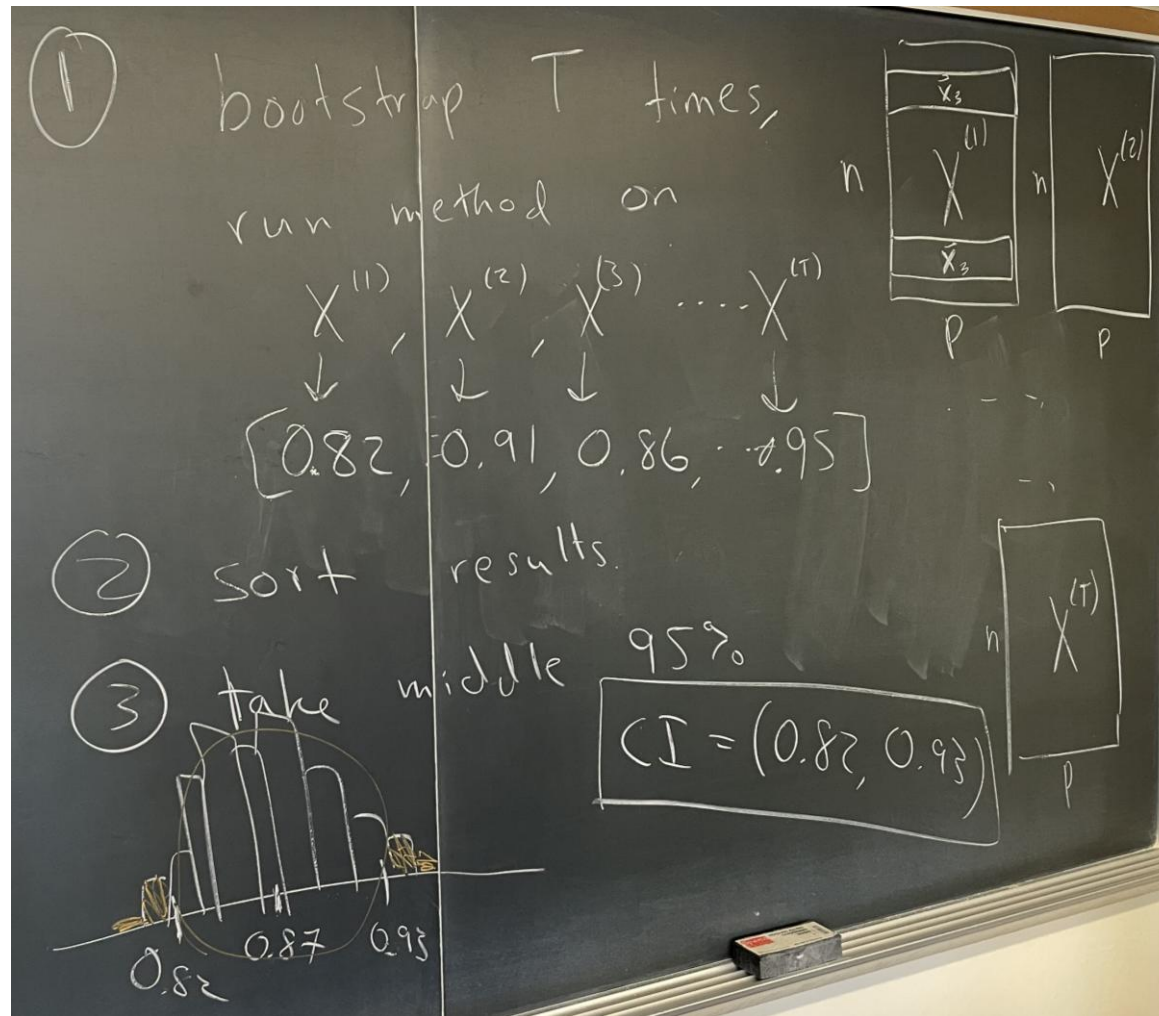 ① bootstrap T times,
run method on
X^(1), X^(2), X^(3) ..... X^(T)
↓ ↓ ↓ ↓
[0.82, 0.91, 0.86, ... 0.95]
② sort results.
③ take middle 95%
CI = (0.82, 0.93)
0.82 0.87 0.93
x⃗₃
n X^(1)
x⃗₃
p
n X^(2)
p
n X^(T)
p